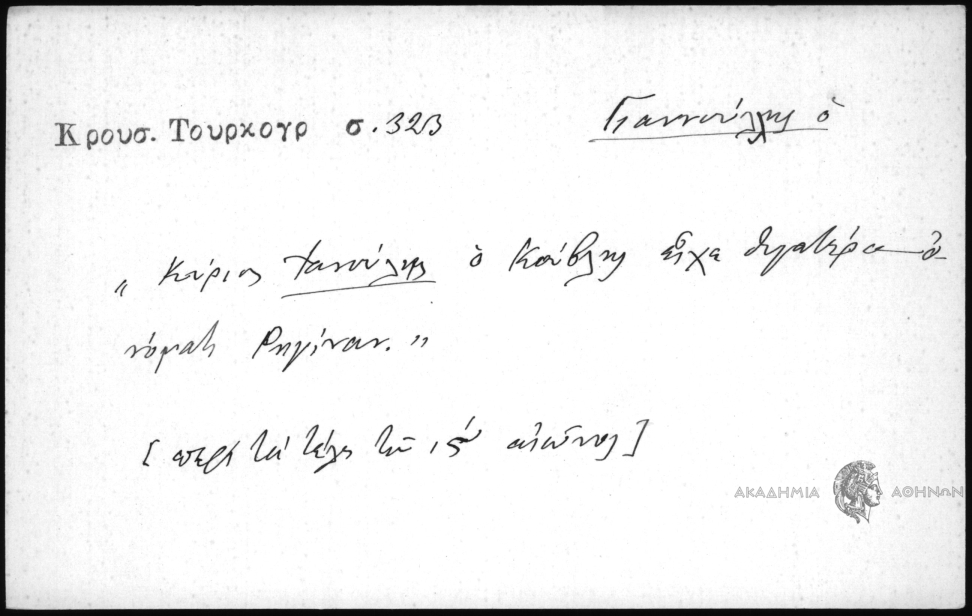 Κρουσ. Τουρκογρ σ. 323 Γιαννούλης ὁ
„ Κύριος Γιανούλης ὁ Κούβλης εἶχε θυγατέρα ὀ-
νόματι Ρηγίναν. "
[περὶ τὰ τέλη τοῦ ις΄ αἰῶνος]
ΑΚΑΔΗΜΙΑ ΑΘΗΝΩΝ